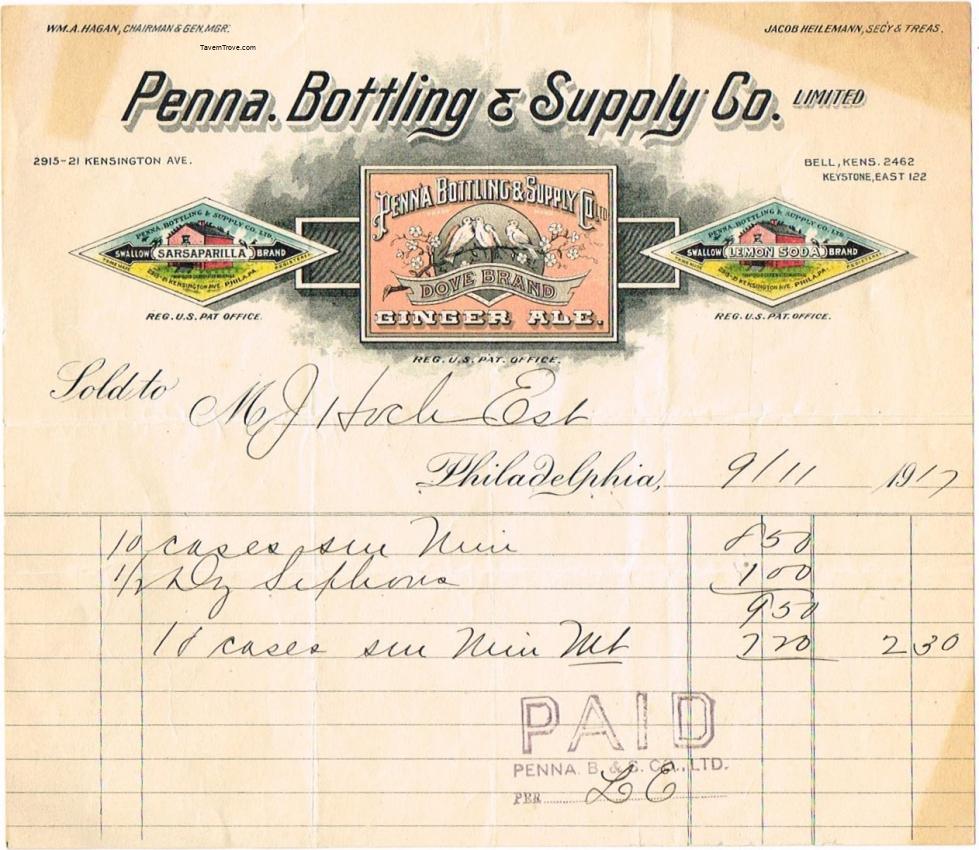 WM. A. HAGAN, CHAIRMAN & GEN. MGR.
JACOB HEILEMANN, SEC'Y & TREAS.
TavernTrove.com
Penna. Bottling & Supply Co. LIMITED
2915-21 KENSINGTON AVE.
BELL, KENS. 2462
KEYSTONE, EAST 122
PENNA. BOTTLING & SUPPLY CO. LTD.
SWALLOW SARSAPARILLA BRAND
TRADE MARK REGISTERED
2915-21 KENSINGTON AVE. PHILA. PA.
REG. U.S. PAT OFFICE.
PENN'A BOTTLING & SUPPLY CO LTD
DOVE BRAND
GINGER ALE.
REG. U.S. PAT. OFFICE.
PENNA. BOTTLING & SUPPLY CO. LTD.
SWALLOW LEMON SODA BRAND
TRADE MARK REGISTERED
2915-21 KENSINGTON AVE. PHILA. PA.
REG. U.S. PAT. OFFICE.
Sold to M J Hoch Est
Philadelphia, 9/11 1917
10 cases sm Min 8 50
1/2 Dz Siphons 1 00
9 50
18 cases sm Min Mt 7 20 2 30
PAID
PENNA. B. & S. CO., LTD.
PER L E